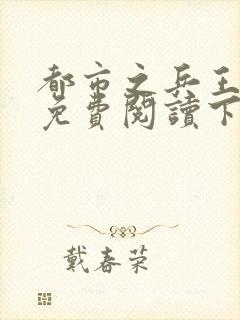 都市之兵王
免費閱讀下
戴春荣